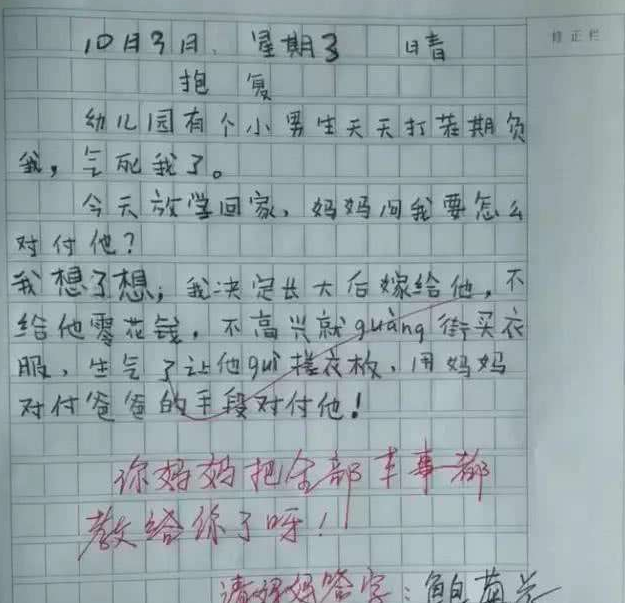 修正栏
10月3日、星期3 晴
抱复
幼儿园有个小男生天天打茬期负
我，气死我了。
今天放学回家，妈妈问我要怎么
对付他？
我想了想，我决定长大后嫁给他，不
给他零花钱，不高兴就guàng街买衣
服，生气了让他guì搓衣板，用妈妈
对付爸爸的手段对付他！
你妈妈把全部本事都
教给你了呀！
请妈妈签字：鲍